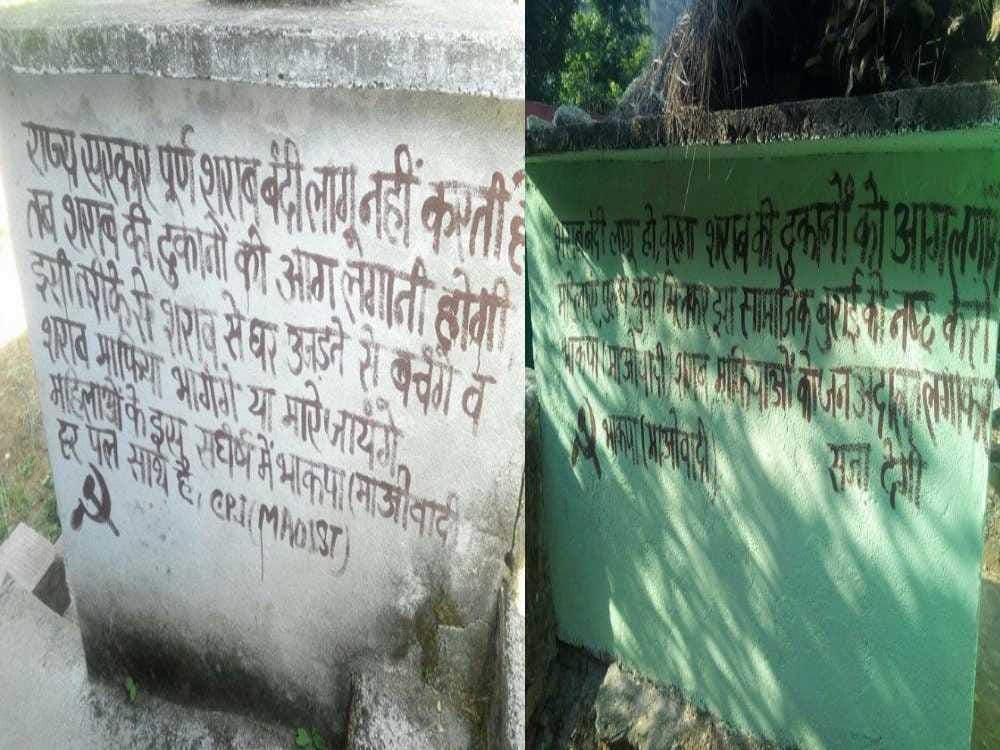 राज्य सरकार पूर्ण शराब बंदी लागू नहीं करती है
तब शराब की दुकानों को आग लगानी होगी
इसी तरीके से शराब से घर उजड़ते से बचेंगे व
शराब माफिया भागेंगे या मारे जायेंगे
महिलाओं के इस संघर्ष में भाकपा (माओवादी
हर पल साथ है, CPI (MAOIST)
शराब बंदी लागू हो वरना शराब की दुकानों को आग लगाओ
महिलाएं पुरुष युवा मिलकर इस सामाजिक बुराई को नष्ट करो
भाकपा (माओवादी शराब माफियाओं को जन अदालत लगाकर
भाकपा (माओवादी) सजा देगी